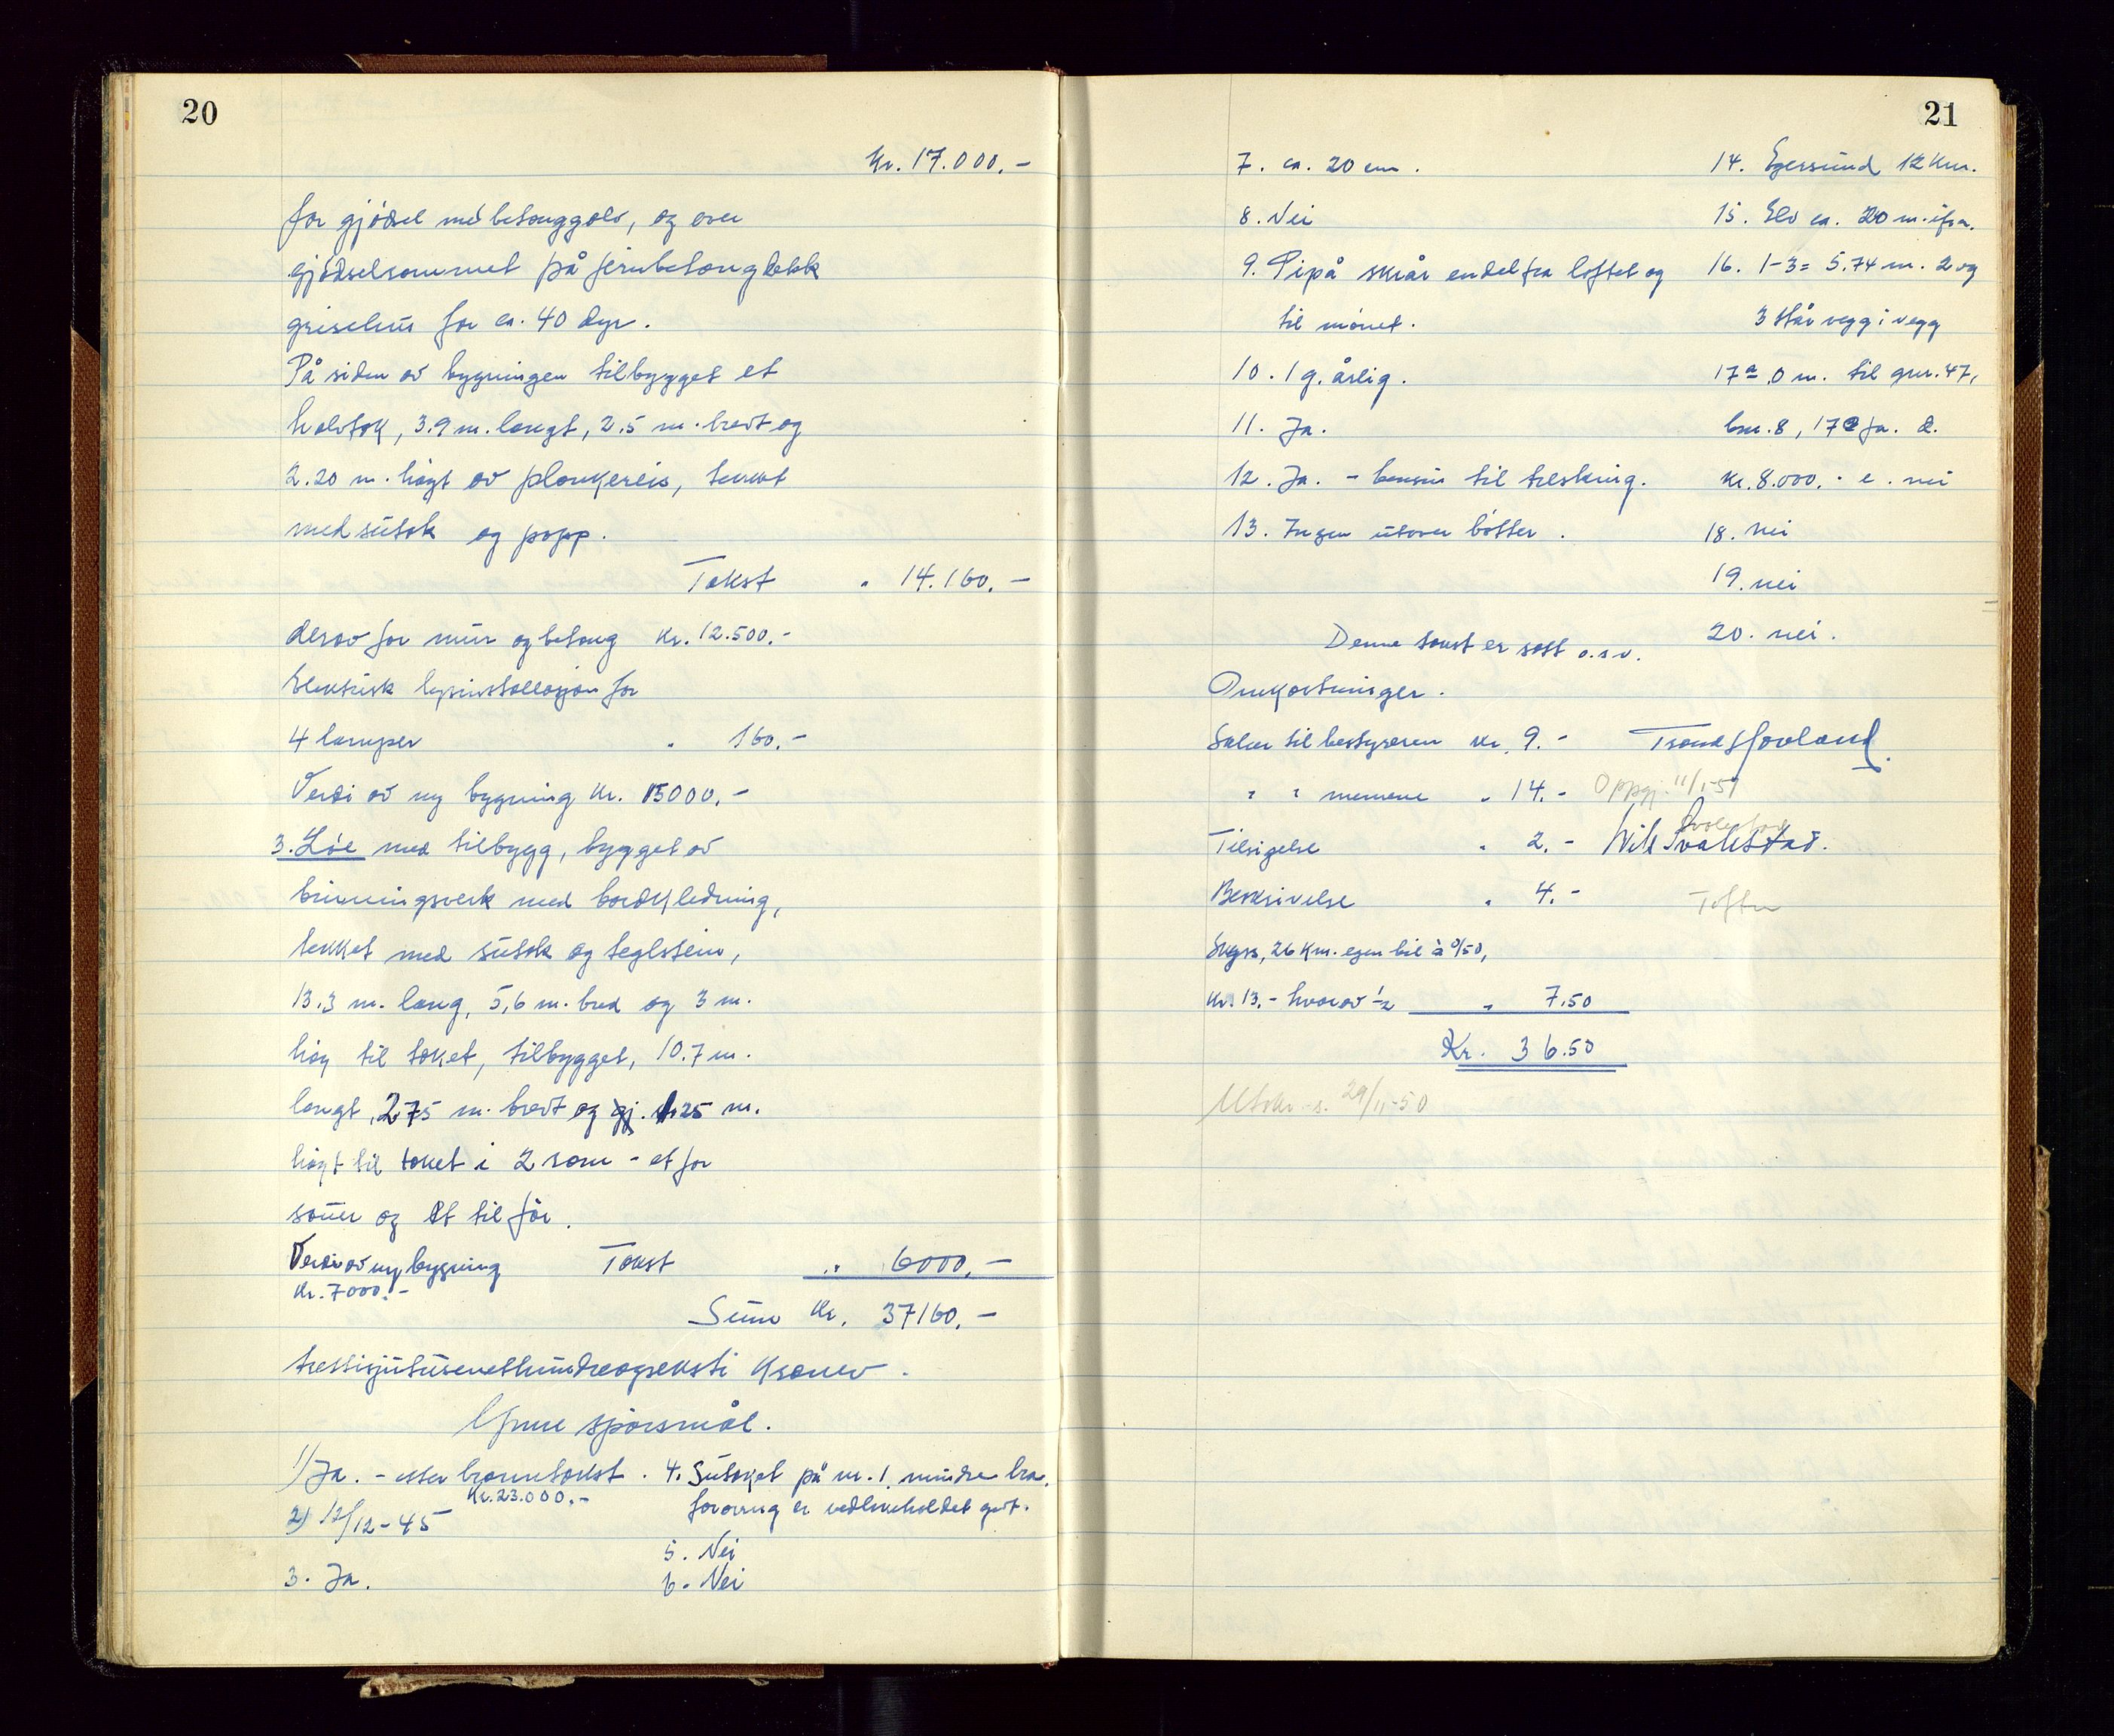 20
Kr. 17.000.-
for gjødsel med betonggolv, og over
gjødselrommet på jernbetongdekk
grisehus for ca. 40 dyr.
På siden av bygningen tilbygget et
halvtak, 3.9 m. langt, 2.5 m. bredt og
2.20 m. høgt av plankereis, tekket
med sutak og papp.
Takst " 14.160.-
derav for mur og betong Kr. 12.500.-
Elektrisk lysinstallasjon for
4 lamper " 160.-
Verdi av ny bygning Kr. 15000.-
3. Løe med tilbygg, bygget av
bindingsverk med bordkledning,
tekket med sutak og teglstein,
13.3 m. lang, 5,6 m. bred og 3 m.
høg til taket, tilbygget, 10.7 m.
langt, 2.75 m. bredt og gj. 1.25 m.
høgt til taket i 2 rom - et for
sauer og et til før.
Verdi av ny bygning Takst " 6000.-
Kr. 7000.-
Sum Kr. 37160.-
trettisjutusenetthundreogseksti kroner.
Ymse spørsmål.
1) Ja. - etter branntakst. 4. Sutaket på nr. 1 mindre bra,
Kr. 23.000.- forøvrig er vedlikeholdet godt.
2) 12/12-45
5. Nei
3. Ja. 6. Nei
21
7. ca. 20 cm.
8. Nei
9. Pipå skrår endel fra loftet og
til mønet.
10. 1 g. årlig.
11. Ja.
12. Ja. - bensin til tresking.
13. Ingen utover bøtter.
14. Egersund 12 km.
15. Elv ca. 20 m. ifra.
16. 1-3 = 5.74 m. 2 og
3 står vegg i vegg
17a. 0 m. til gnr. 47,
bnr. 8, 17c ja. d.
Kr. 8.000.- e. nei
18. nei
19. nei
20. nei.
Denne takst er satt o.s.v.
Omkostninger.
Salær til bestyreren kr. 9.- Trond Hovland.
" " mennene " 14.- Oppgj. 11/1-51
Tilsigelse " 2.- Nils Svalestad.
Beskrivelse " 4.-
Skyss, 26 km. egen bil à 0/50,
Kr. 13.- hvorav 1/2 " 7.50
Kr. 36.50
Utskr. s. 29/11-50